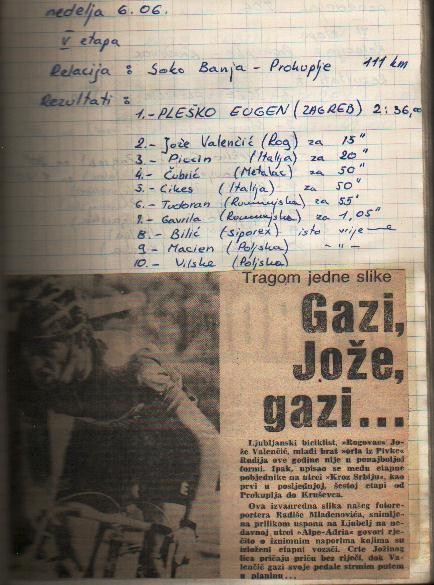 nedelja 6.06.
V etapa
Relacija : Soko Banja - Prokuplje 111 km
Rezultati :
1.- PLEŠKO EUGEN (ZAGREB) 2:36,00
2.- Jože Valenčič (Rog) za 15"
3.- Piccin (Italja) za 20"
4.- Čubrić (Metalac) za 50"
5.- Cikes (Italja) za 50"
6.- Tudoran (Rumunjska) za 55"
7.- Gavrila (Rumunjska) za 1,05"
8.- Bilić (Siporex) isto vrijeme
9.- Macien (Poljska) - " -
10.- Vilske (Poljska)
Tragom jedne slike
Gazi,
Jože,
gazi...
Ljubljanski biciklist, »Rogovac« Jo-
že Valenčič, mlađi brat »orla iz Pivke«
Radija ove godine nije u ponajboljoj
formi. Ipak, upisao se među etapne
pobjednike na utrci »Kroz Srbiju«, kao
prvi u posljednjoj, šestoj etapi od
Prokuplja do Kruševca.
Ova izvanredna slika našeg fotore-
portera Radiše Mladenovića, snimlje-
na prilikom uspona na Ljubelj na ne-
davnoj utrci »Alpe-Adria« govori rje-
čito o iznimnim naporima kojima su
izloženi etapni vozači. Crte Jožinog
lica pričaju priču bez riječi, dok Va-
lenčič gazi svoje pedale strmim putem
u planinu...